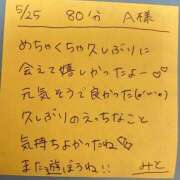 5/25 80分 A様
めちゃくちゃ久しぶりに
会えて嬉しかったよー♡♡
元気そうで良かった(*'ω'*)
久しぶりのえっちなこと
気持ちよかったね♡
また遊ぼうね!! みと